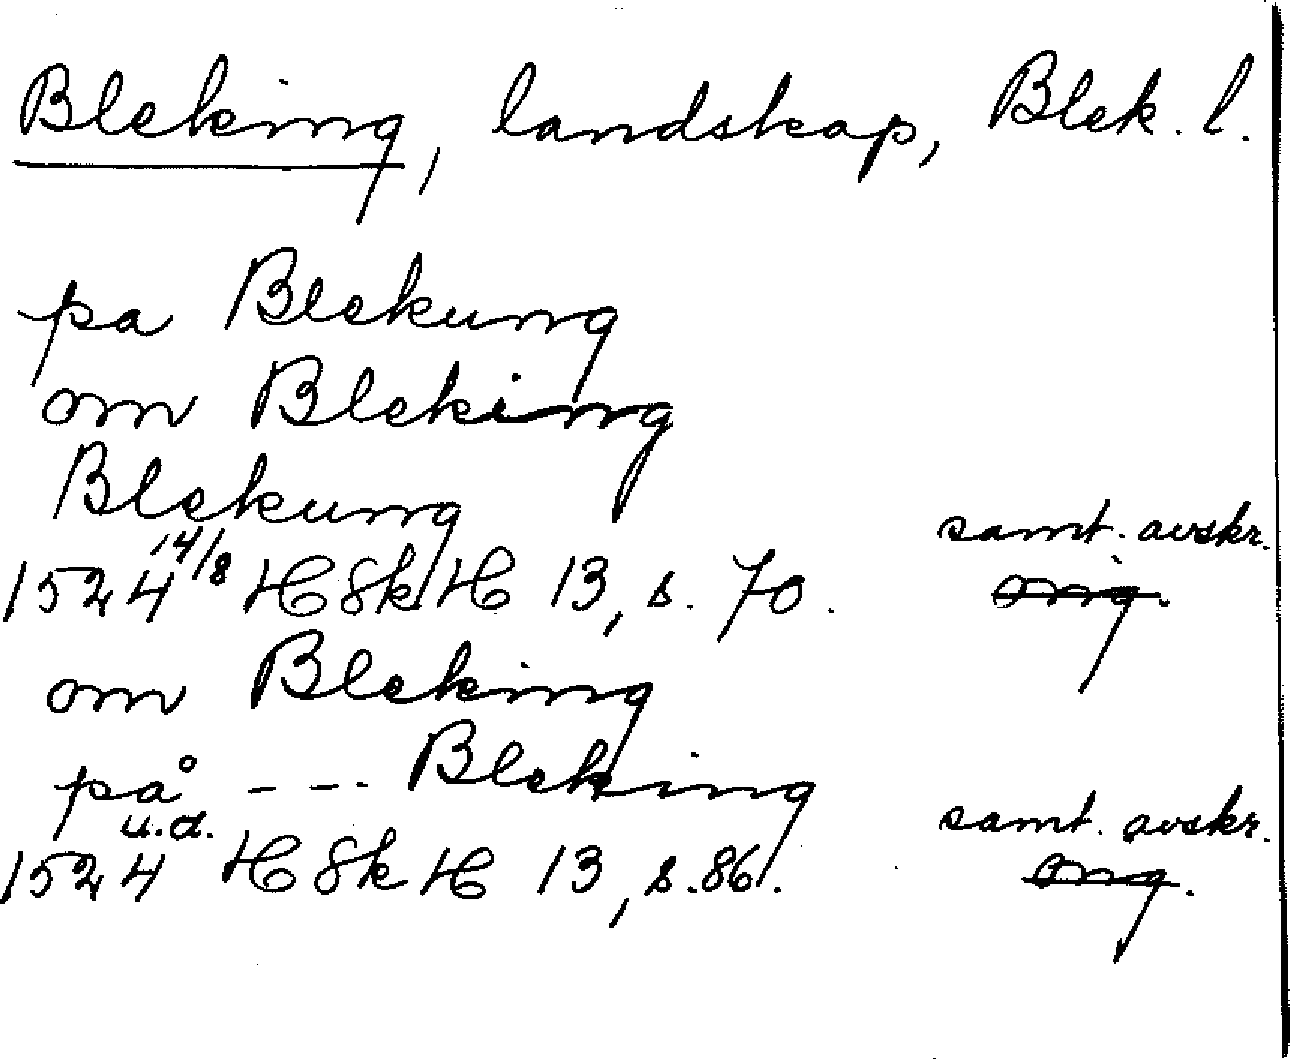 Bleking, landskap, Blek. l.
pa Blekung
om Bleking
Blekung
samt. avskr.
1524 14/8 HSkH 13, s. 70. orig.
om Bleking
på --- Bleking
u.d. samt. avskr.
1524 HSkH 13, s. 86. orig.